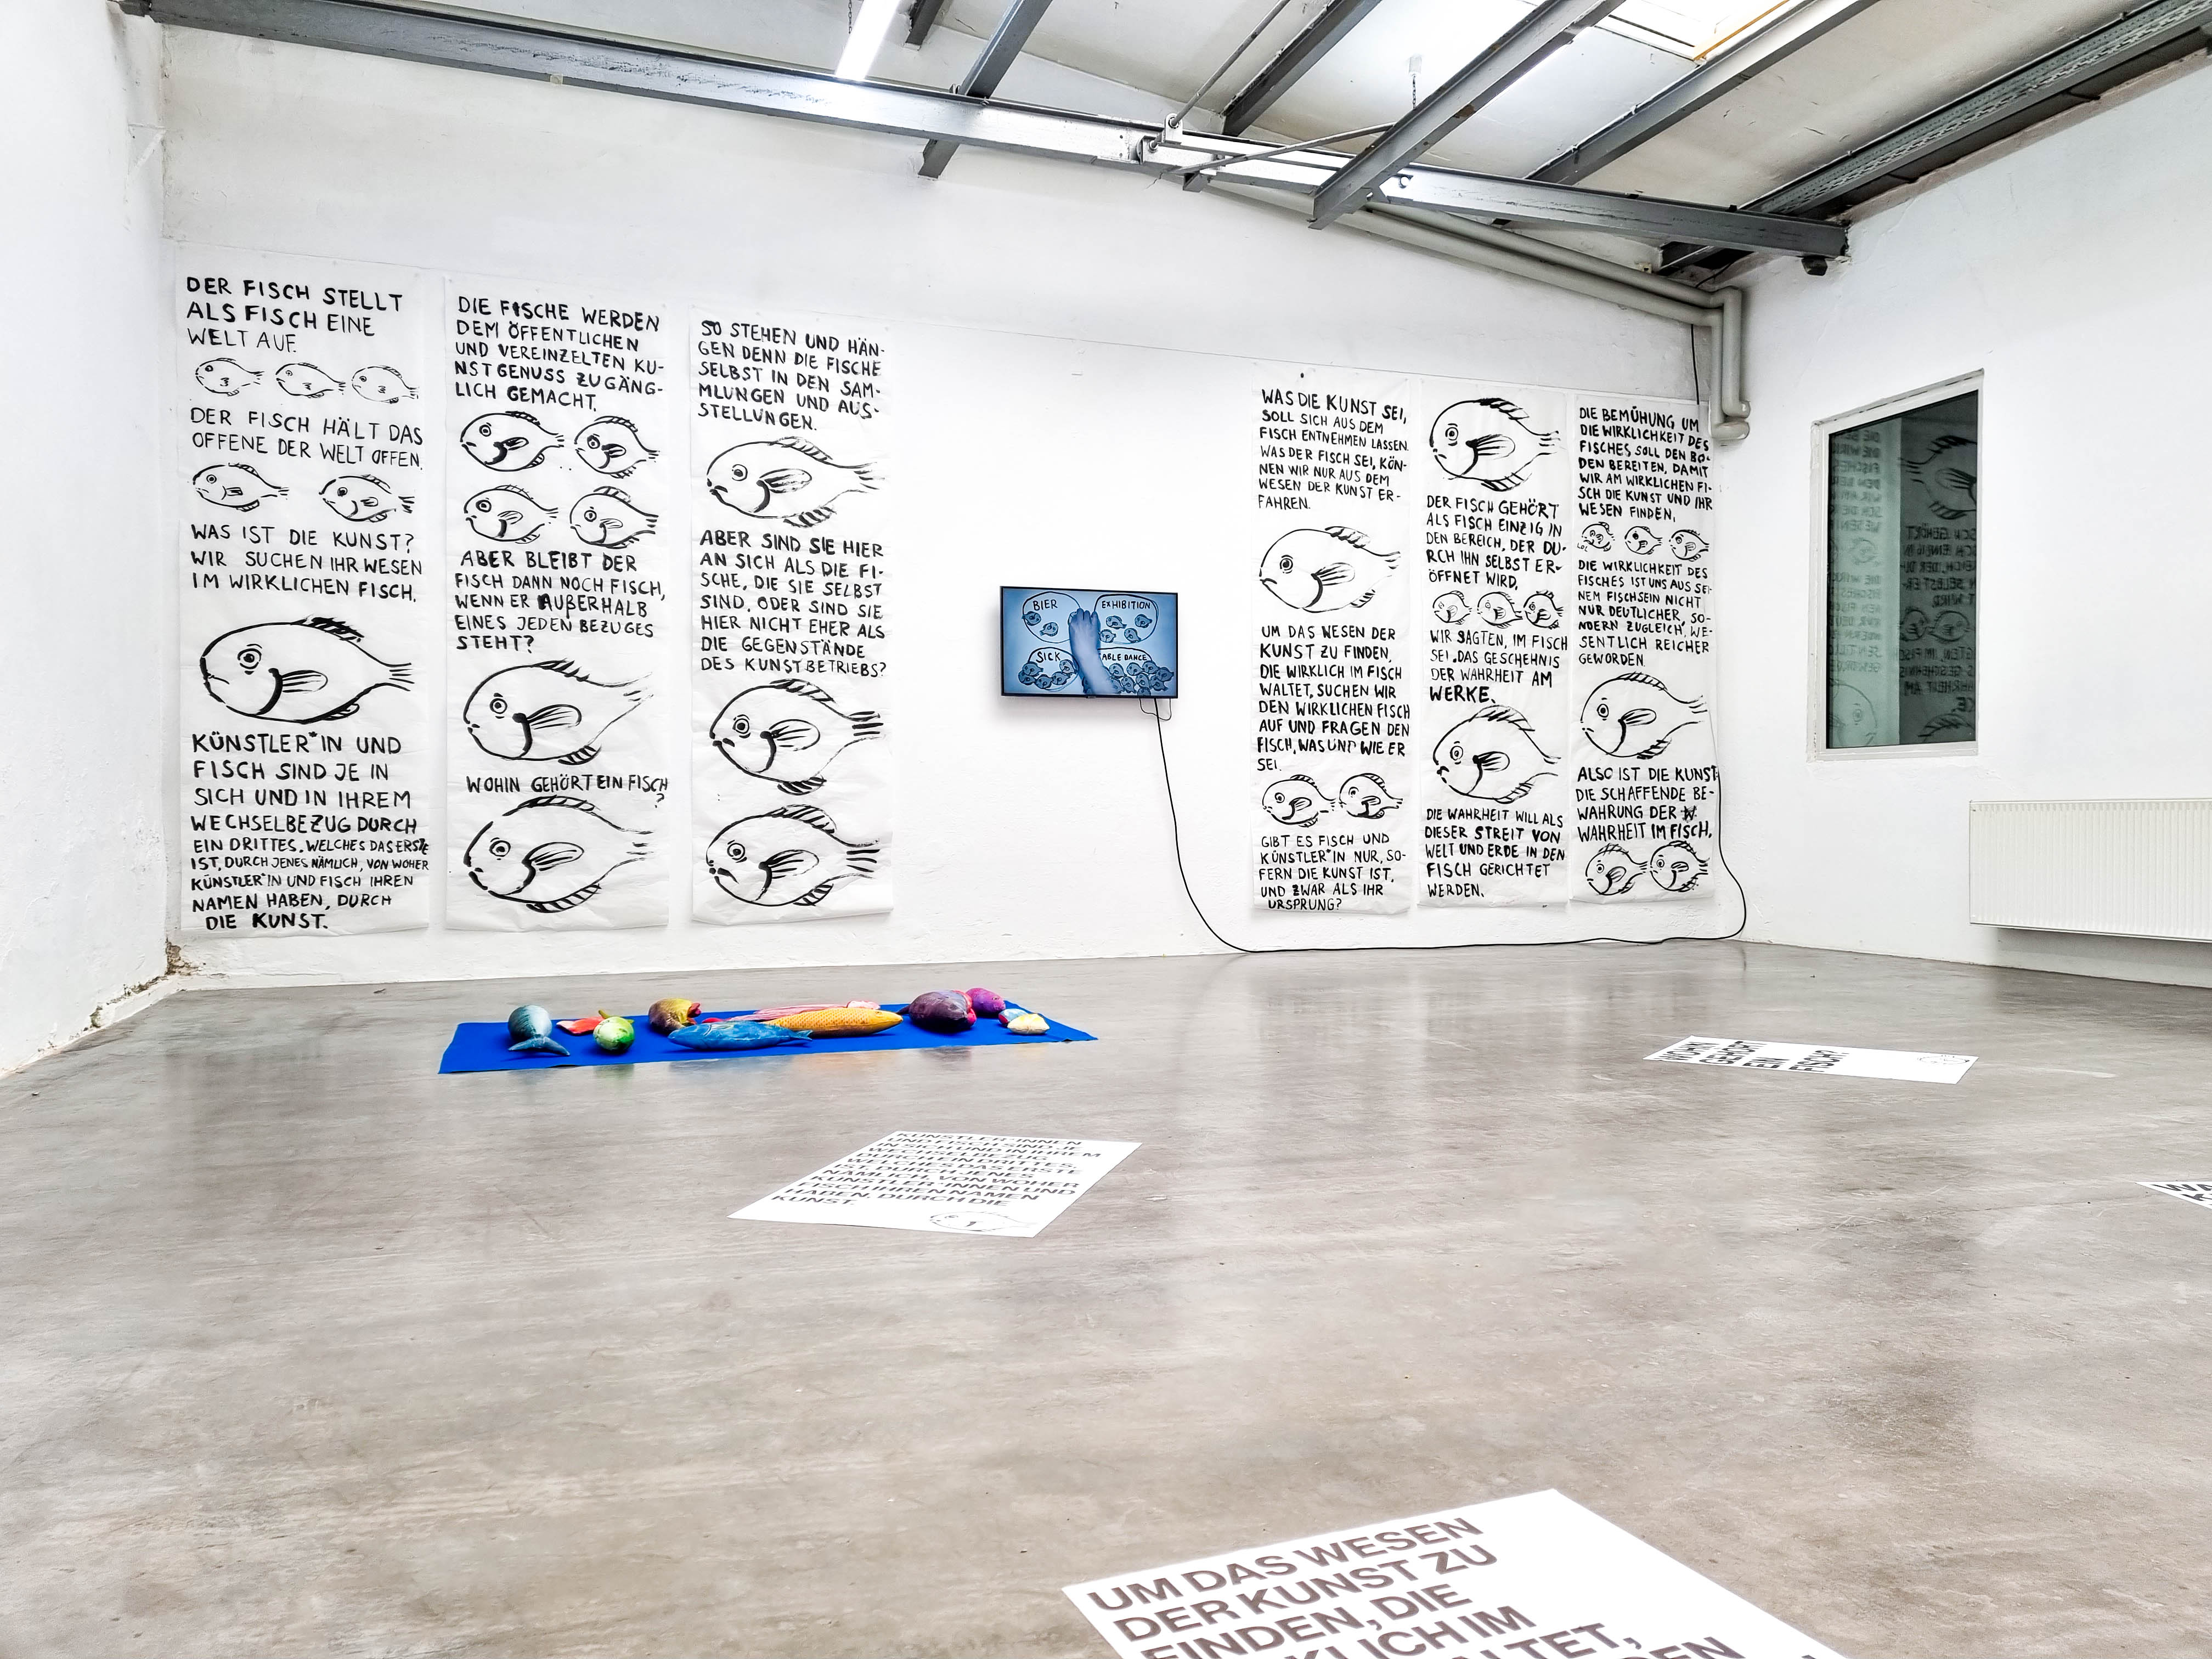 DER FISCH STELLT
ALS FISCH EINE
WELT AUF.
DER FISCH HÄLT DAS
OFFENE DER WELT OFFEN.
WAS IST DIE KUNST?
WIR SUCHEN IHR WESEN
IM WIRKLICHEN FISCH.
KÜNSTLER*IN UND
FISCH SIND JE IN
SICH UND IN IHREM
WECHSELBEZUG DURCH
EIN DRITTES, WELCHES DAS ERSTE
IST, DURCH JENES NÄMLICH, VON WOHER
KÜNSTLER*IN UND FISCH IHREN
NAMEN HABEN, DURCH
DIE KUNST.
DIE FISCHE WERDEN
DEM ÖFFENTLICHEN
UND VEREINZELTEN KU-
NSTGENUSS ZUGÄNG-
LICH GEMACHT.
ABER BLEIBT DER
FISCH DANN NOCH FISCH,
WENN ER AUßERHALB
EINES JEDEN BEZUGES
STEHT?
WOHIN GEHÖRT EIN FISCH
?
SO STEHEN UND HÄN-
GEN DENN DIE FISCHE
SELBST IN DEN SAM-
MLUNGEN UND AUS-
STELLUNGEN.
ABER SIND SIE HIER
AN SICH ALS DIE FI-
SCHE, DIE SIE SELBST
SIND, ODER SIND SIE
HIER NICHT EHER ALS
DIE GEGENSTÄNDE
DES KUNSTBETRIEBS?
BIER
EXHIBITION
SICK
ABLE DANCE
WAS DIE KUNST SEI,
SOLL SICH AUS DEM
FISCH ENTNEHMEN LASSEN.
WAS DER FISCH SEI, KÖN-
NEN WIR NUR AUS DEM
WESEN DER KUNST ER-
FAHREN.
UM DAS WESEN DER
KUNST ZU FINDEN,
DIE WIRKLICH IM FISCH
WALTET, SUCHEN WIR
DEN WIRKLICHEN FISCH
AUF UND FRAGEN DEN
FISCH, WAS UND WIE ER
SEI.
GIBT ES FISCH UND
KÜNSTLER*IN NUR, SO-
FERN DIE KUNST IST,
UND ZWAR ALS IHR
URSPRUNG?
DER FISCH GEHÖRT
ALS FISCH EINZIG IN
DEN BEREICH, DER DU-
RCH IHN SELBST ER-
ÖFFNET WIRD.
WIR SAGTEN, IM FISCH
SEI DAS GESCHEHNIS
DER WAHRHEIT AM
WERKE.
DIE WAHRHEIT WILL ALS
DIESER STREIT VON
WELT UND ERDE IN DEN
FISCH GERICHTET
WERDEN.
DIE BEMÜHUNG UM
DIE WIRKLICHKEIT DES
FISCHES SOLL DEN BO-
DEN BEREITEN, DAMIT
WIR AM WIRKLICHEN FI-
SCH DIE KUNST UND IHR
WESEN FINDEN.
DIE WIRKLICHKEIT DES
FISCHES IST UNS AUS SEI-
NEM FISCHSEIN NICHT
NUR DEUTLICHER, SO-
NDERN ZUGLEICH WE-
SENTLICH REICHER
GEWORDEN.
ALSO IST DIE KUNST
DIE SCHAFFENDE BE-
WAHRUNG DER
WAHRHEIT IM FISCH.
WOHIN
GEHÖRT
EIN
FISCH?
KÜNSTLER*INNEN
UND FISCH SIND JE
IN SICH UND IN IHREM
WECHSELBEZUG
DURCH EIN DRITTES,
WELCHES DAS ERSTE
IST, DURCH JENES
NÄMLICH, VON WOHER
KÜNSTLER*INNEN UND
FISCH IHREN NAMEN
HABEN, DURCH DIE
KUNST.
UM DAS WESEN
DER KUNST ZU
FINDEN, DIE
KLICH IM
LTET,